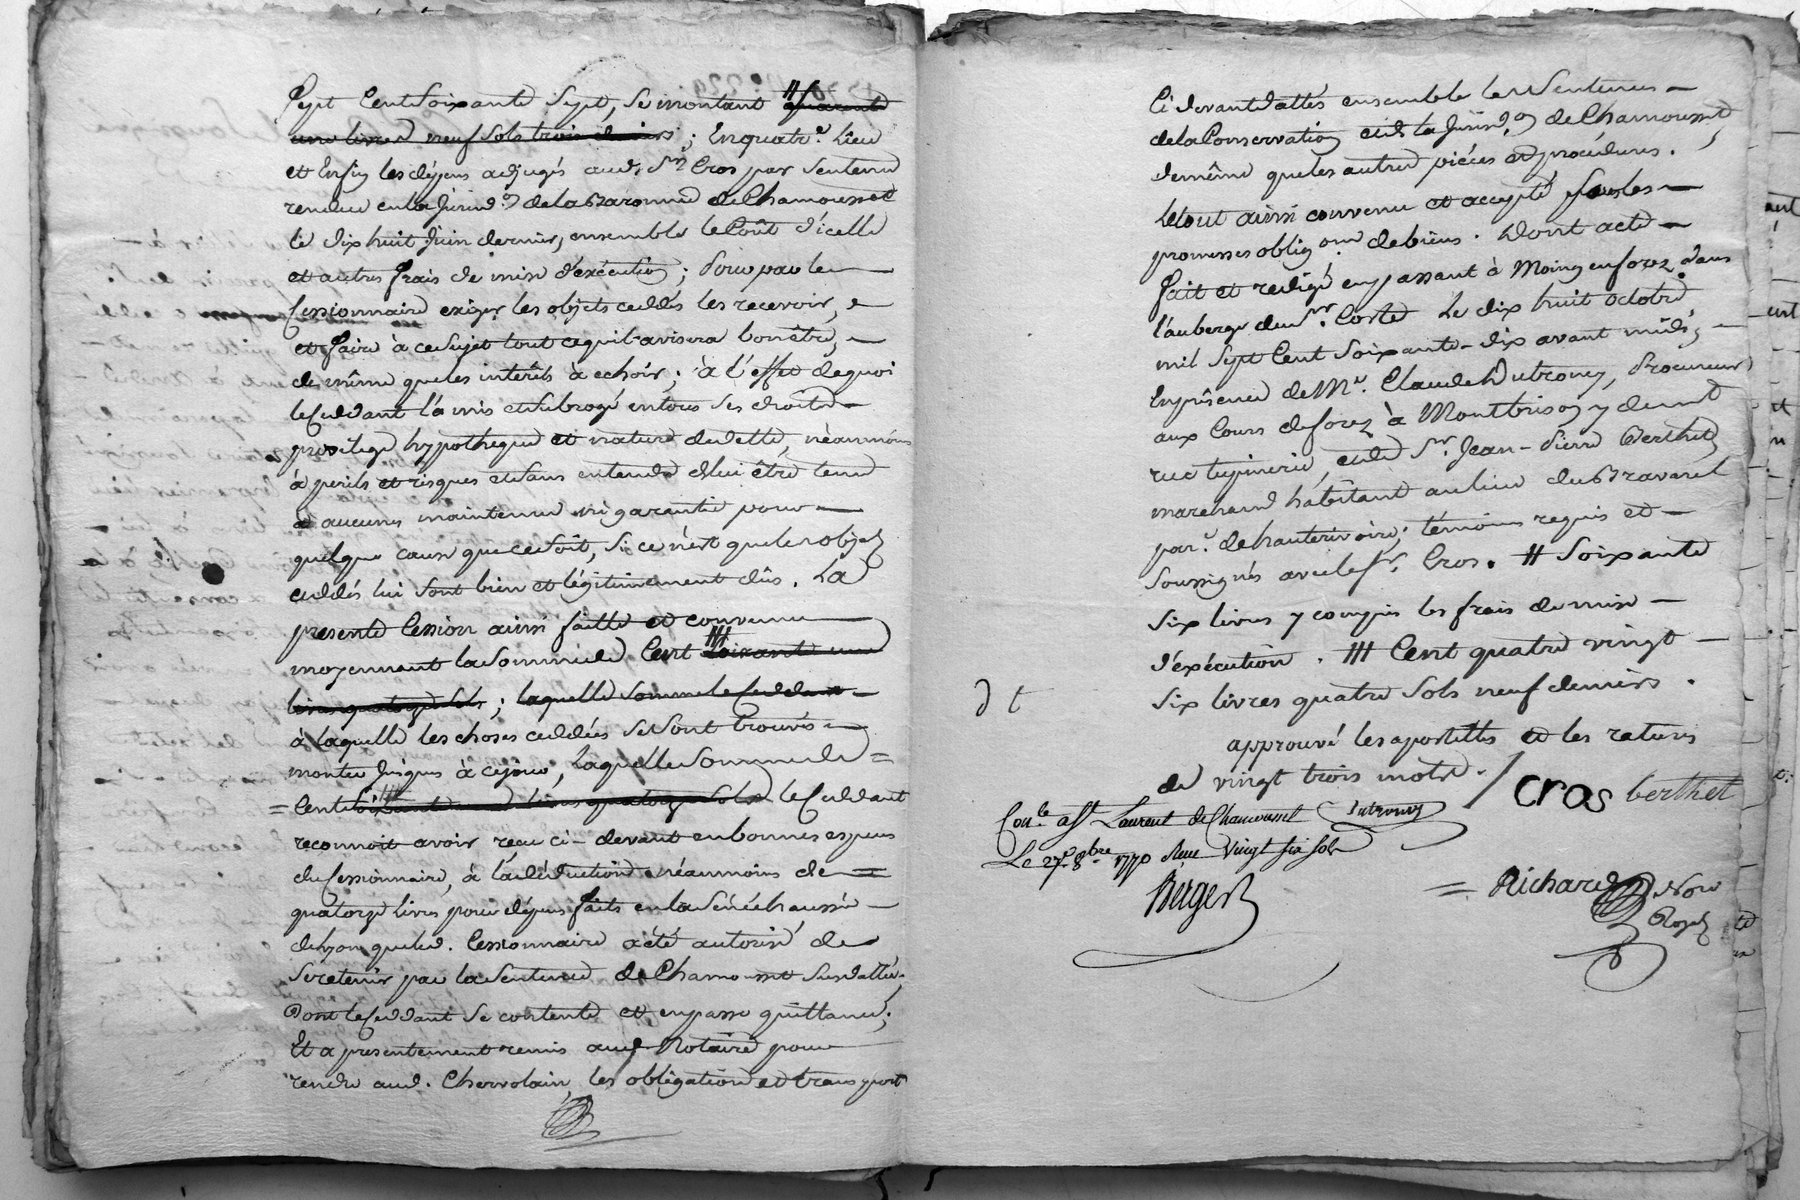 Sept Cent Soixante Sept, se montant # quarante
une livres neuf sols trois deniers ; En quatr.e Lieu
et Enfin les dépens adjugés aud. Sr. Cros par Sentence
rendue en la Jurisd.on de la Baronnie de Chamousset
le dix huit Juin dernier, ensemble le Coût d'icelle
et autres frais de mise d'exécution ; Pour par le
Cessionnaire exiger les objets ceddés les recevoir,
et faire à ce sujet tout ce qu'il avisera bon être,
de même que les intérêts à echoir ; à l'effet de quoi
le Ceddant l'a mis et subrogé en tous ses droits
privilege hypotheque et nature de dette, néanmoins
à perils et risques et sans entendre de lui être tenu
à aucunes maintenue ni garantie pour
quelque cause que ce soit, si ce n'est que les objets
ceddés lui sont bien et légitimement dûs. La
presente Cession ainsi faitte et convenue
moyennant la somme de Cent ### soixante une
livres quatorze sols ; laquelle somme le Ceddant
à laquelle les choses ceddées se sont trouvés
monter jusques à ce jour, Laquelle somme de =
= Cent ### soixante une livres quatorze sols le Ceddant
reconnoit avoir reçu ci-devant en bonnes especes
du Cessionnaire, à la déduction néanmoins de
quatorze livres pour dépens faits en la Sénéchaussée
de Lyon que led. Cessionnaire a été autorisé de
se retenir par la Sentence de Chamousset susdattée,
Dont le Ceddant se contente et en passe quittance ;
Et a presentement remis aud. Notaire pour
rendre aud. Chervolain, les obligation et transport
Ci devant dattés ensemble les Sentences
de la Conservation et de la Jurisd.on de Chamousset,
de même que les autres piéces et procédures.
Le tout ainsi convenu et accepté sous les
promesses oblig.ons de biens. Dont acte
fait et redigé en passant à Moing en forez dans
l'auberge du Sr. Coste Le dix huit octobre
mil Sept Cent Soixante-dix avant midi,
En présence de Me. Claude Dutroncy, Procureur
aux Cours de forez à Montbrison y demt
rue tupinerie, et de Sr. Jean-Pierre Berthet
marchand habitant au lieu du Bravaret
par.e de hauterivoire ; témoins requis et
Soussignés avec le Sr. Cros. # Soixante
Six livres y compris les frais de mise
d'exécution. ### Cent quatre vingt
six livres quatre sols neuf deniers.
approuvé les apostilles et les ratures
de vingt trois mots. / Cros berthet
Con.le a St Laurent de Chamousset Dutroncy
Le 27.e 8bre 1770 Reçu vingt six sols
Berger
= Richard Nore
Royal